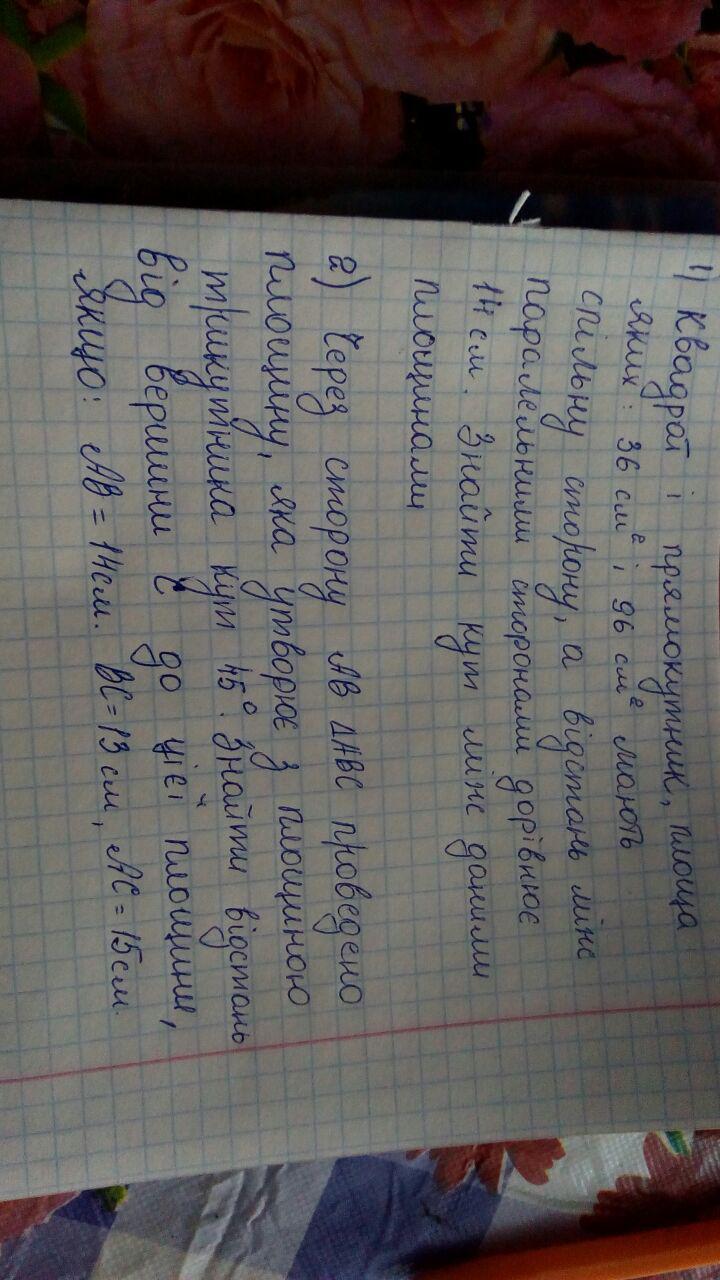 1) Квадрат і прямокутник, площа
яких: 36 см² і 96 см² мають
спільну сторону, а відстань між
паралельними сторонами дорівнює
14 см. Знайти кут між даними
площинами
2) Через сторону АВ ΔАВС проведено
площину, яка утворює з площиною
трикутника кут 45°. Знайти відстань
від вершини С до цієї площини,
якщо: АВ = 14см. ВС = 13 см, АС = 15см.